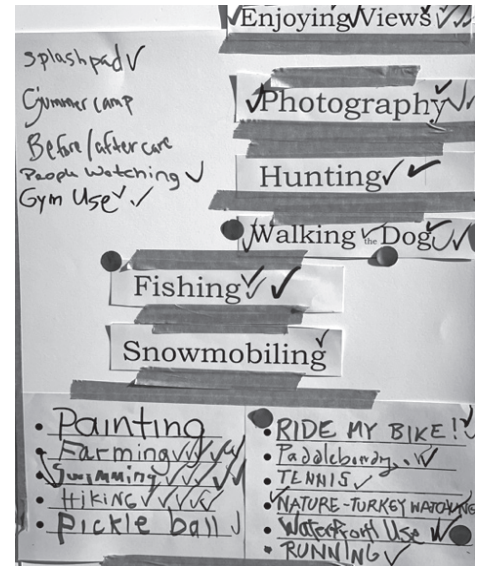 Enjoying Views
Splashpad
Summer camp
Photography
Before/after care
People Watching
Hunting
Gym Use
Walking the Dog
Fishing
Snowmobiling
• Painting
• Farming
• Swimming
• HIKING
• Pickle ball
• RIDE MY BIKE!
• Paddleboarding
• TENNIS
• NATURE-TURKEY WATCHING
• Waterfront Use
• RUNNING